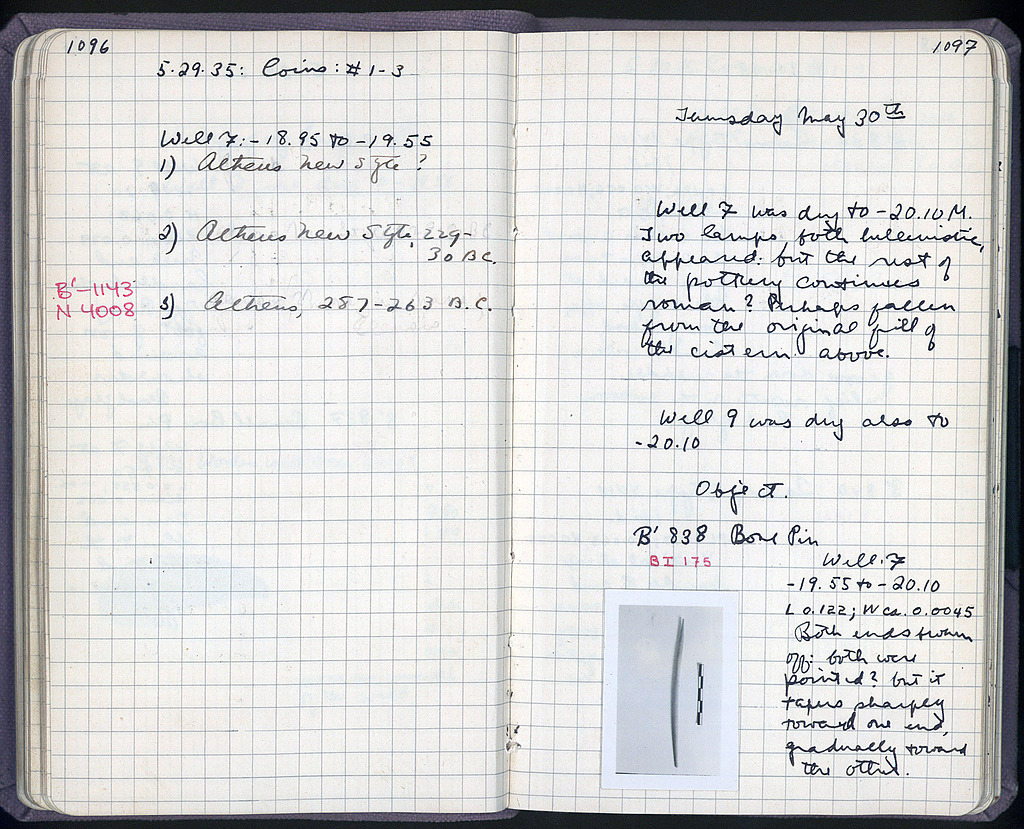 1096
5.29.35: Coins: # 1-3
Well 7: -18.95 to -19.55
1) Athens New Style?
2) Athens New Style, 229-
30 B.C.
B'-1143
N 4008
3) Athens, 287-263 B.C.
1097
May 30th
Well 7 was dry to -20.10 M.
Two lamps, both hellenistic,
appeared: but the rest of
the pottery continues
roman? Perhaps fallen
from the original fill of
the cistern above.
Well 9 was dry also to
-20.10
Object.
B' 838 Bone Pin
BI 175
Well 7
-19.55 to -20.10
L 0.122; W ca. 0.0045
Both ends broken
off: both were
pointed? but it
tapers sharply
toward one end,
gradually toward
the other.